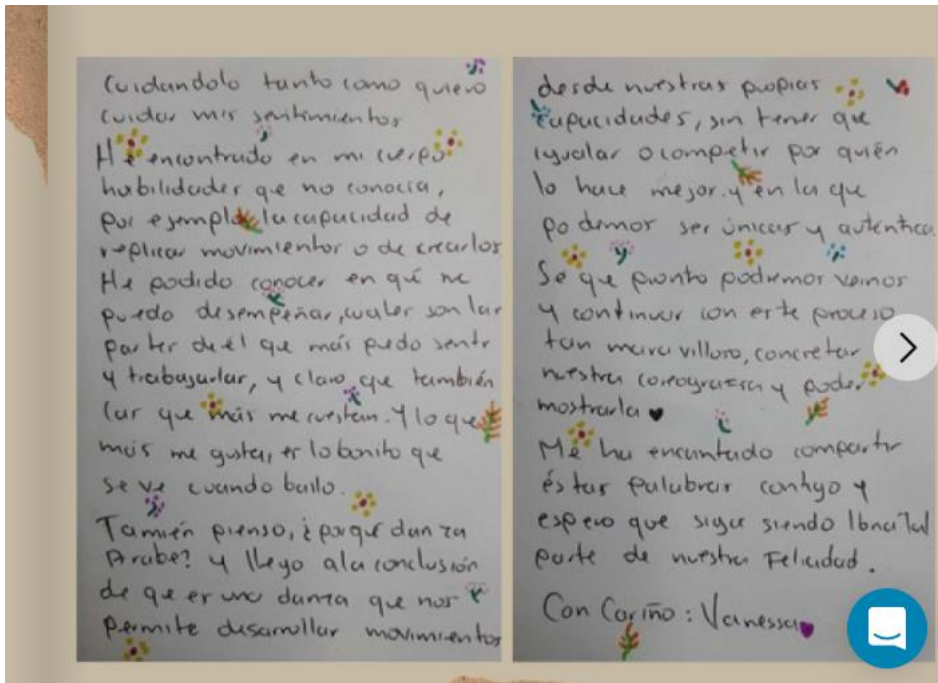 Cuidandolo tanto como quiero
cuidar mis sentimientos
He encontrado en mi cuerpo
habilidades que no conocia,
por ejemplo la capacidad de
replicar movimientos o de crearlos
He podido conocer en qué me
puedo desempeñar, cuales son las
partes de él que más puedo sentir
y trabajarlas, y claro que también
las que más me cuestan. Y lo que
más me gusta, es lo bonito que
se ve cuando bailo.
Tamién pienso, ¿porqué danza
Arabe? y llego a la conclusión
de que es una danza que nos
permite desarrollar movimientos
desde nuestras propias
capacidades, sin tener que
igualar o competir por quién
lo hace mejor. y en la que
podemos ser únicas y auténticas
Se que pronto podremos vernos
y continuar con este proceso
tan maravilloso, concretar
nuestra coreografía y poder
mostrarla
Me ha encantado compartir
éstas palabras contigo y
espero que siga siendo
parte de nuestra Felicidad.
Con Cariño: Vanessa